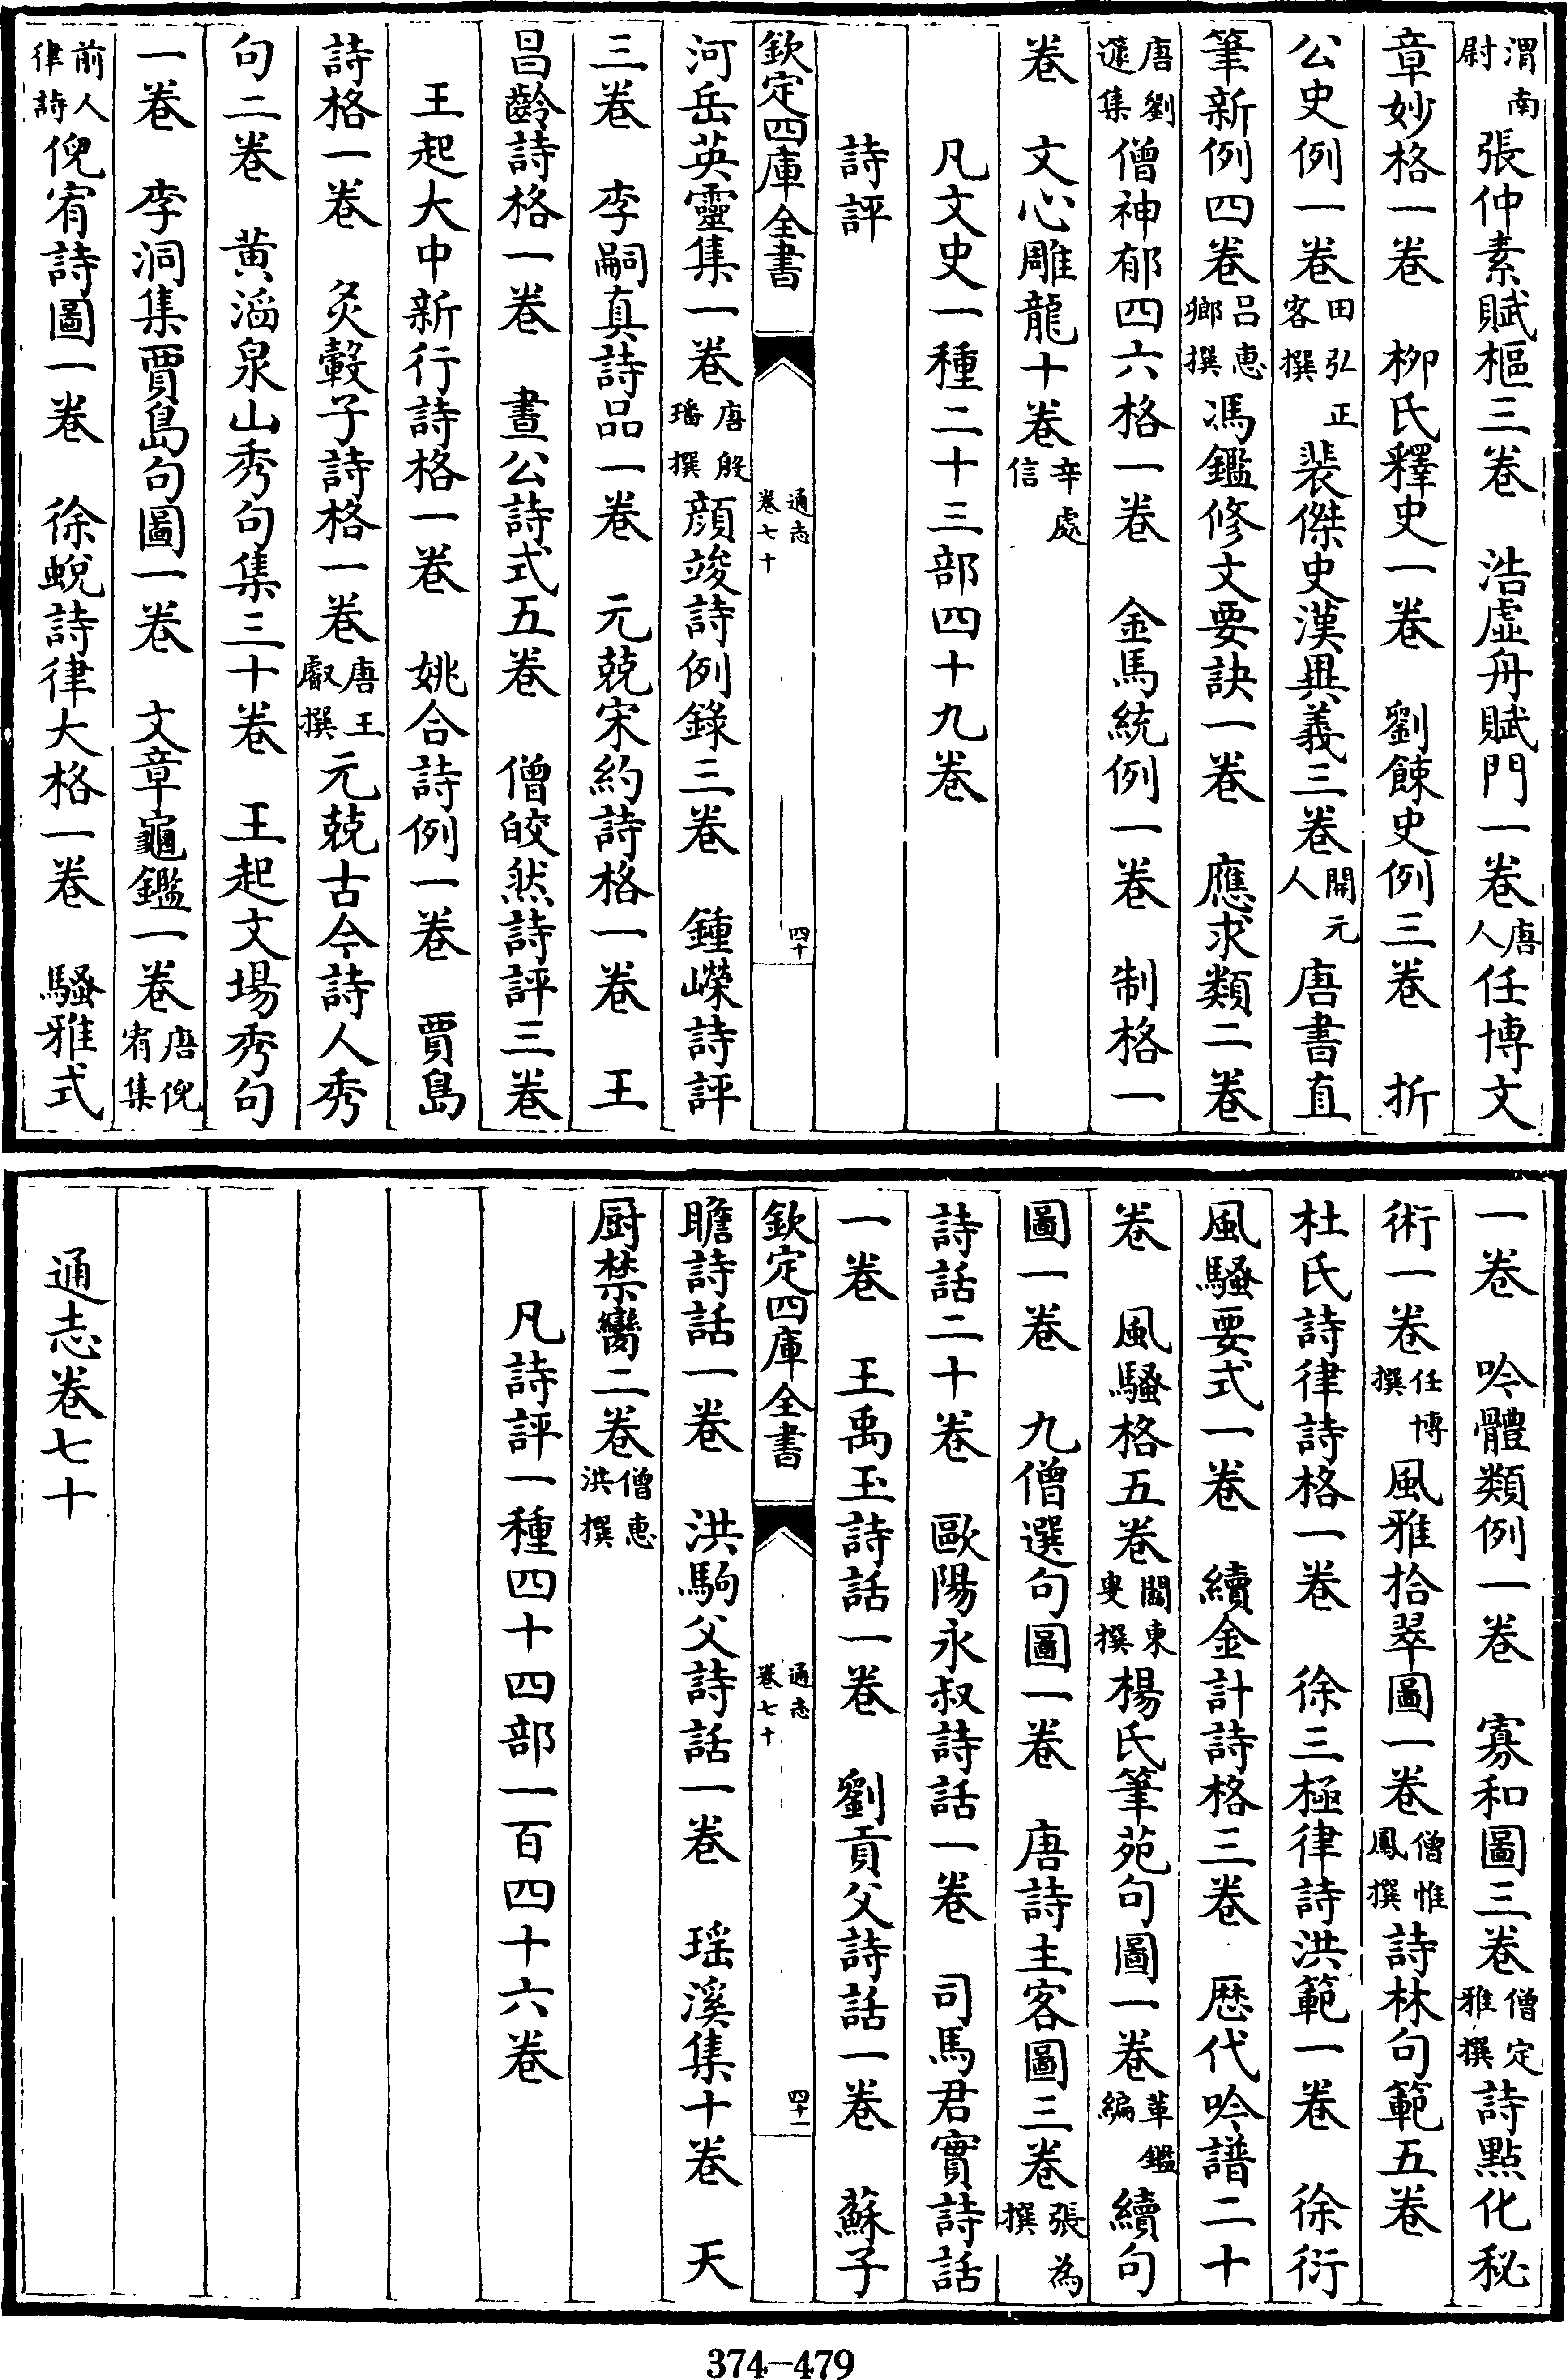 渭南尉張仲素賦樞三卷　浩虛舟賦門一卷唐人任博文
章妙格一卷　柳氏釋史一卷　劉餗史例三卷　折
公史例一卷田弘正客撰裴傑史漢異義三卷開元人唐書直
筆新例四卷吕惠卿撰馮鑑修文要訣一卷　應求類二卷
唐劉蘧集僧神郁四六格一卷　金馬統例一卷　制格一
卷　文心雕龍十卷辛處信
凡文史一種二十三部四十九卷
詩評
欽定四庫全書
通志
卷七十
四十
河岳英靈集一卷唐殷璠撰顏竣詩例錄三卷　鍾嶸詩評
三卷　李嗣真詩品一卷　元兢宋約詩格一卷　王
昌齡詩格一卷　晝公詩式五卷　僧皎然詩評三卷
王起大中新行詩格一卷　姚合詩例一卷　賈島
詩格一卷　炙轂子詩格一卷唐王叡撰元兢古今詩人秀
句二卷　黄滔泉山秀句集三十卷　王起文場秀句
一卷　李洞集賈島句圖一卷　文章龜鑑一卷唐倪宥集
前人律詩倪宥詩圖一卷　徐蛻詩律大格一卷　騷雅式
一卷　吟體類例一卷　寡和圖三卷僧定雅撰詩點化秘
術一卷任博撰風雅拾翠圖一卷僧惟鳳撰詩林句範五卷
杜氏詩律詩格一卷　徐三極律詩洪範一卷　徐衍
風騷要式一卷　續金計詩格三卷　歴代吟譜二十
卷　風騷格五卷閻東叟撰楊氏筆苑句圖一卷革鑑編續句
圖一卷　九僧選句圖一卷　唐詩主客圖三卷張為撰
詩話二十卷　歐陽永叔詩話一卷　司馬君實詩話
一卷　王禹玉詩話一卷　劉貢父詩話一卷　蘇子
欽定四庫全書
通志
卷七十
四十一
瞻詩話一卷　洪駒父詩話一卷　瑶溪集十卷　天
厨禁臠二卷僧惠洪撰
凡詩評一種四十四部一百四十六卷
通志卷七十
374-479